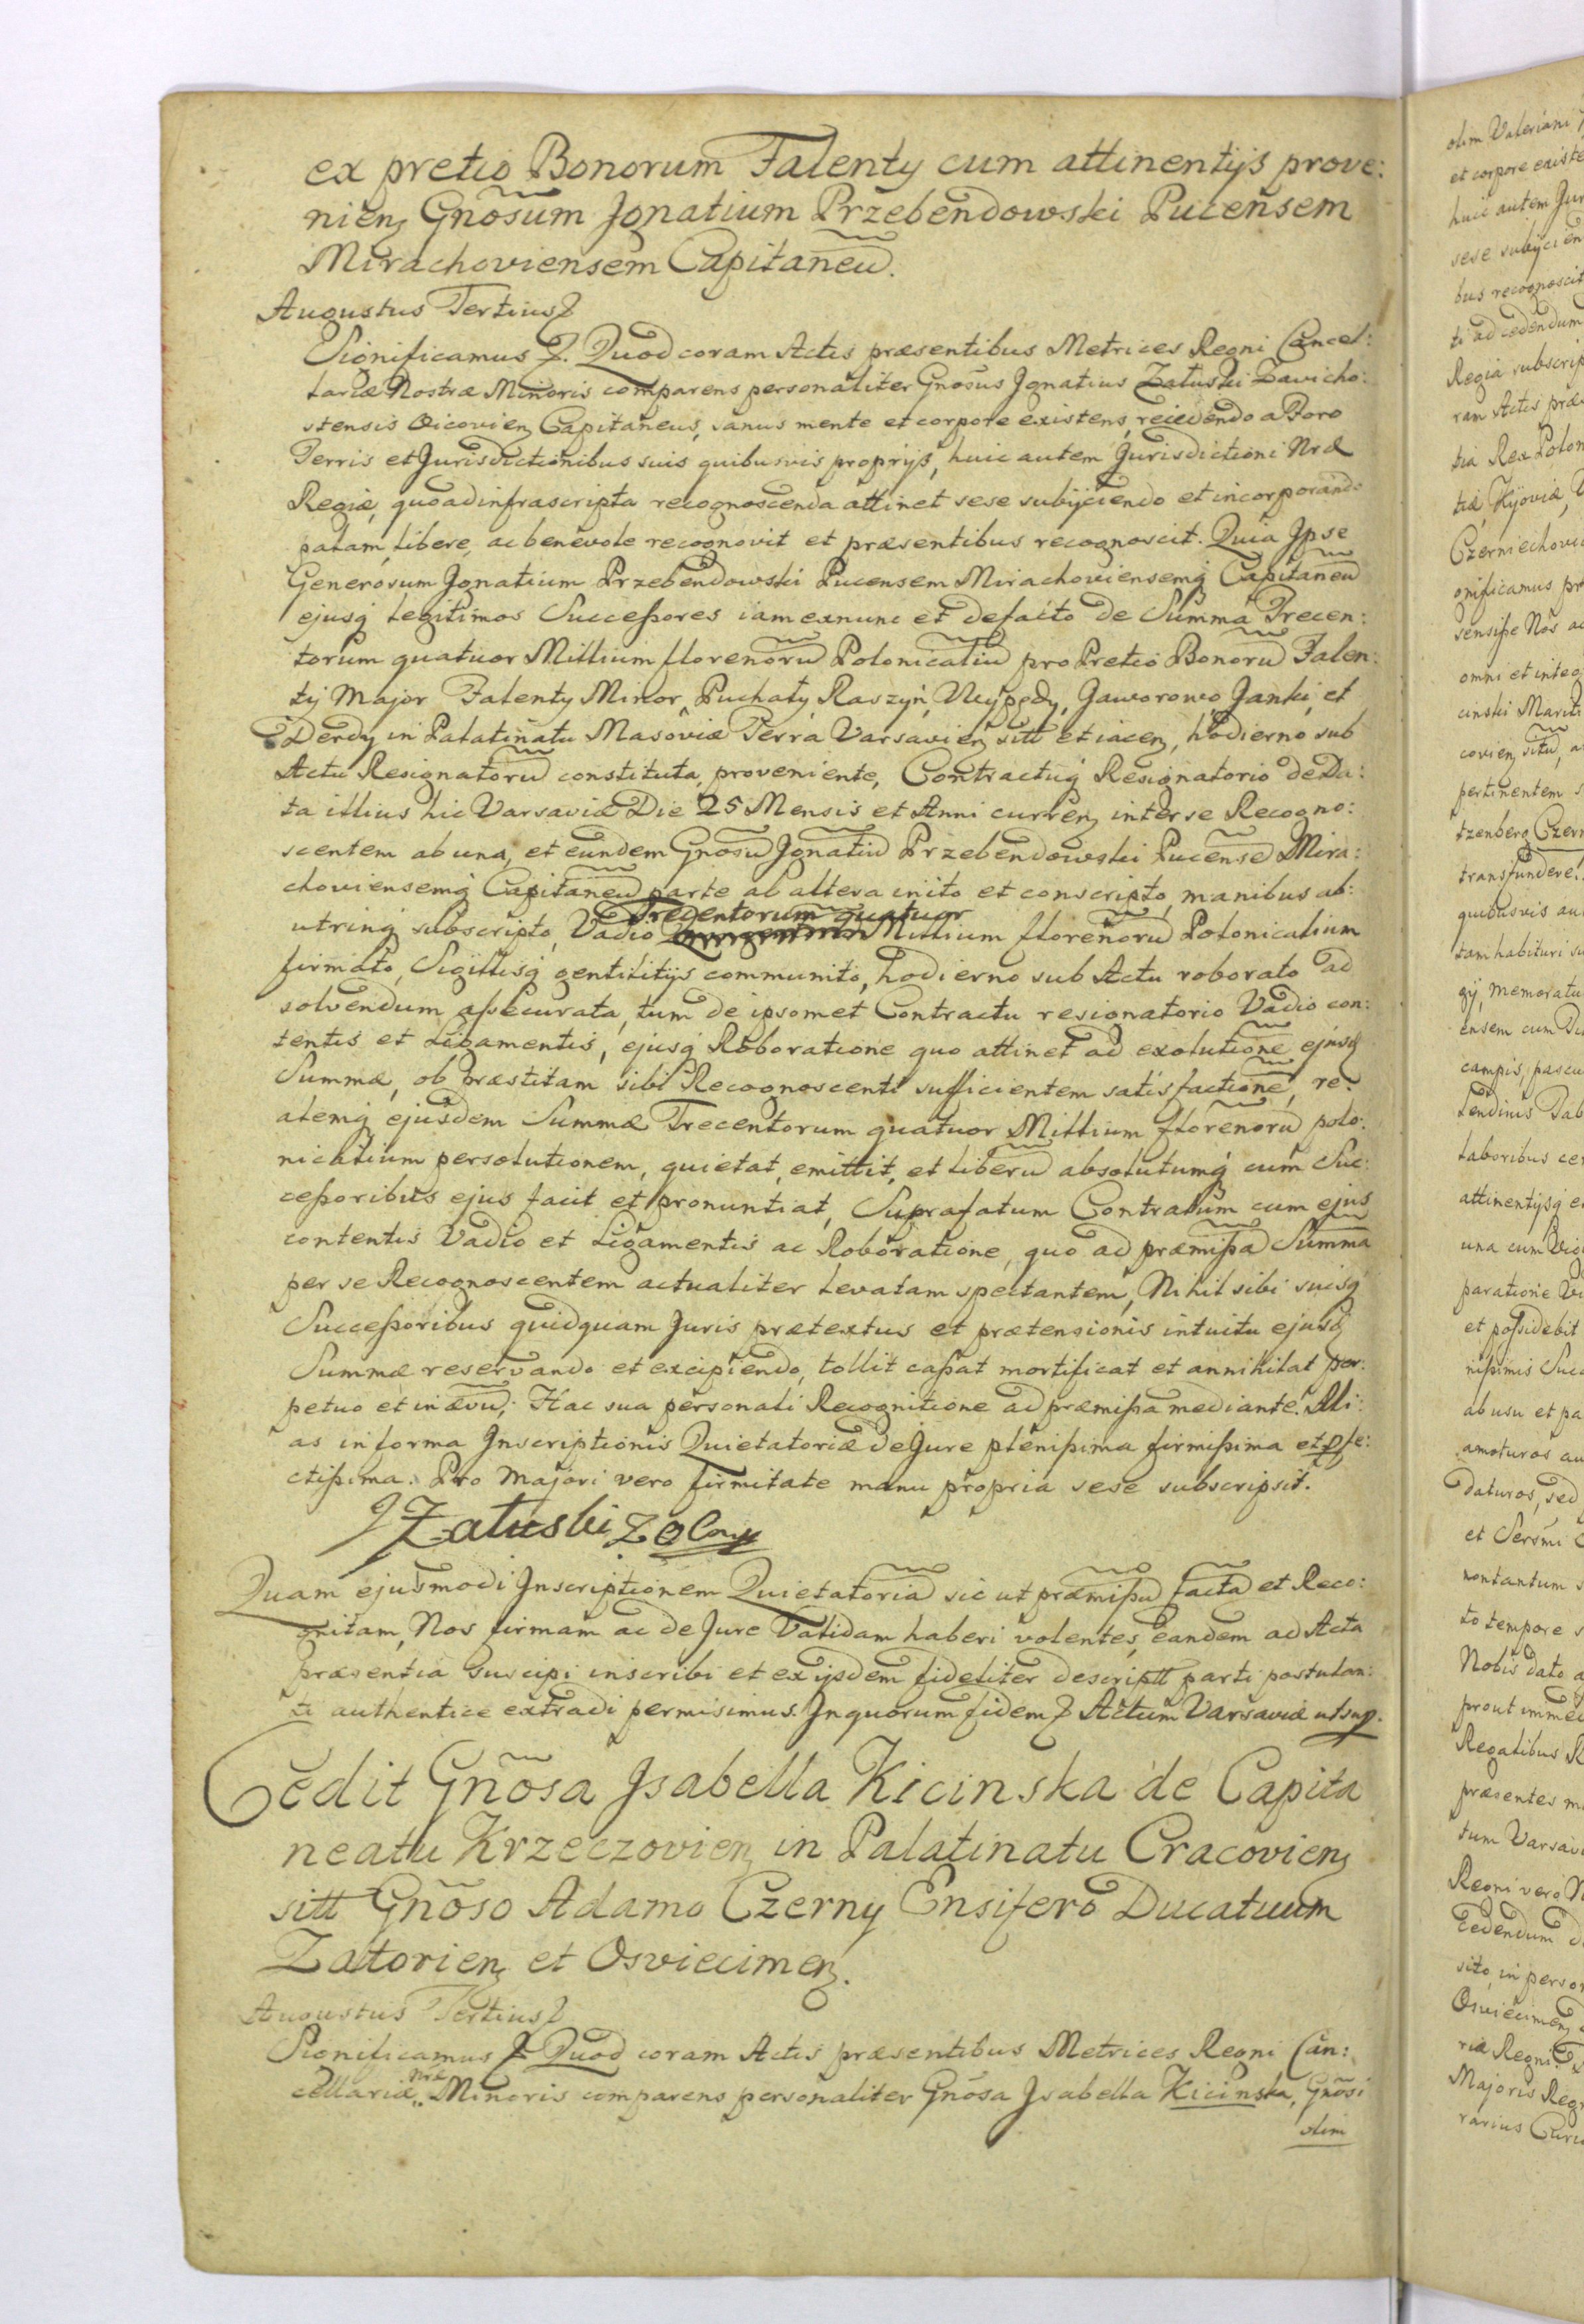 ex pretio Bonorum Falenty cum attinentijs prove:
nienz Gnõsum Jgnatium Przebendowski Pucensem
Mirachoviensem Capitaneũ.
Augustus Tertius
Significamus Quod coram Actis præsentibus Metrices Regni Cancel:
lariæ Nostræ Minoris comparens personaliter Gnõsus Jgnatius Załuski Zavicho:
stensis Oicovienz Capitaneus, sanus mente et corpore existens, reiedendo a Foro
Terris et Jurisdictionibus suis quibusvis proprijs, huic autem Jurisdictioni Nræ
Regiæ, quo ad infrascripta recognoscenda attinet sese subijciendo et incorporando
palam, libere, ac benevole recognovit et præsentibus recognoscit. Quia Jpse
Generosum Jgnatium Przebendowski Pucensem Mirachoviensemq́ Capitaneũ
ejusq́ legitimos Successores iam exnunc et defacto de Summa Trecen:
torum quatuor Millium florenorũ Polonicaliũ pro Pretio Bonorũ Falen:
tÿ Major Falenty Minor, Puchały, Raszyń, Wypędy, Jaworowo Janki, et
Derdy in Palatinatu Masoviæ Terra Varsavienz sitt et iacenz, hodierno sub
Actu Resignatorũ constituta, proveniente, Contractuq́ Resignatorio de Da:
ta illius hic Varsaviæ Die 25 Mensis et Anni currenz inter se Recogno:
scentem ab una, et eundem Gnõsũ Jgnatiũ Przebendowski Pucensẽ Mira:
choviensemq́ Capitaneũ parte ab altera inito et conscripto, manibus ab:
Trecentorum quatuor
utrinq́ subscripto, Vadio Millium florenorũ Polonicalium
firmato, Sigillisq́ gentilitijs communito, hodierno sub Actu roborato ad
solvendum assecurata, tum de ipsomet Contractu resignatorio Vadio con:
tentis et Ligamentis, ejusq́ Roboratione quo attinet ad exolutionẽ ejusd̃
Summæ, ob præstitam sibi Recognoscenti sufficientem satisfactionẽ, re:
alemq́ ejusdem Summæ Trecentorum quatuor Millium florenorũ polo:
nicalium persolutionem, quietat, emittit, et liberũ absolutumq́ cum Suc:
cessoribus ejus facit et pronuntiat, Suprafatum Contractum cum ejus
contentis Vadio et Ligamentis ac Roboratione, quo ad præmissã Summã
per se Recognoscentem actualiter levatam spectantem, Nihil sibi suisq́
Successoribus quidquam Juris prætextus et prætensionis intuitu ejusd̃
Summæ reservando et excipiendo, tollit cassat mortificat et annihilat per:
petuo et in ævũ; Hac sua personali Recognitione ad præmissa mediante. Ali:
as in forma Jnscriptionis Quietatoriæ de Jure plenissima firmissima et pfe:
ctissima. Pro Majori vero firmitate manu propria sese subscripsit.
J Załuski
Quam ejusmodi Jnscriptionem Quietatoriã sic ut præmissũ factã et Reco:
gnitam, Nos firmam ac de Jure Validam haberi volentes, eandem ad Acta
præsentia suscipi inscribi et ex ijsdem fideliter descriptt parti postulan:
ti authentice extradi permisimus. Jn quorum fidem Actum Varsaviæ ut sup.
Cedit Gnõsa Jsabella Kicinska de Capita
neatu Krzeczovienz in Palatinatu Cracovienz
sitt Gnõso Adamo Czerny Ensifero Ducatuum
Zatorienz et Osviecimenz.
Augustus Tertius
Significamus Quod coram Actis præsentibus Metrices Regni Can:
Nræ
cellariæ Minoris comparens personaliter Gnõsa Jsabella Kicinska, Gnõsi
olim
olim Valeriani
et corpore existe
huic autem Jur
sese subijcien
bus recognoscit
ti ad cedendum
Regia subscrip
ram Actis præ
tia Rex Polon
tiæ, Kijoviæ,
Czerniechovi
gnificamus pr
sensisse Nos ac
omni et integ
cinski Marit
covienz sitũ, a
pertinentem
tzenberg Czern
transfundere
quibusvis au
tam habituri su
qÿ, memoratu
ensem cum
campis, pascu
Lendinis
laboribus cer
attinentijsq́ e
una cum
paratione
et possidebit
nissimis Succ
ab usu et pa
amoturos au
daturos, sed
et Serśmi
nontantum s
to tempore s
Nobis dato a
prout immed
Regalibus R
præsentes m
tum Varsavi
Regni vero N
cedendum d
sito, in person
Osviecimenz
riæ Regni
Majoris Regn
rarius Curi